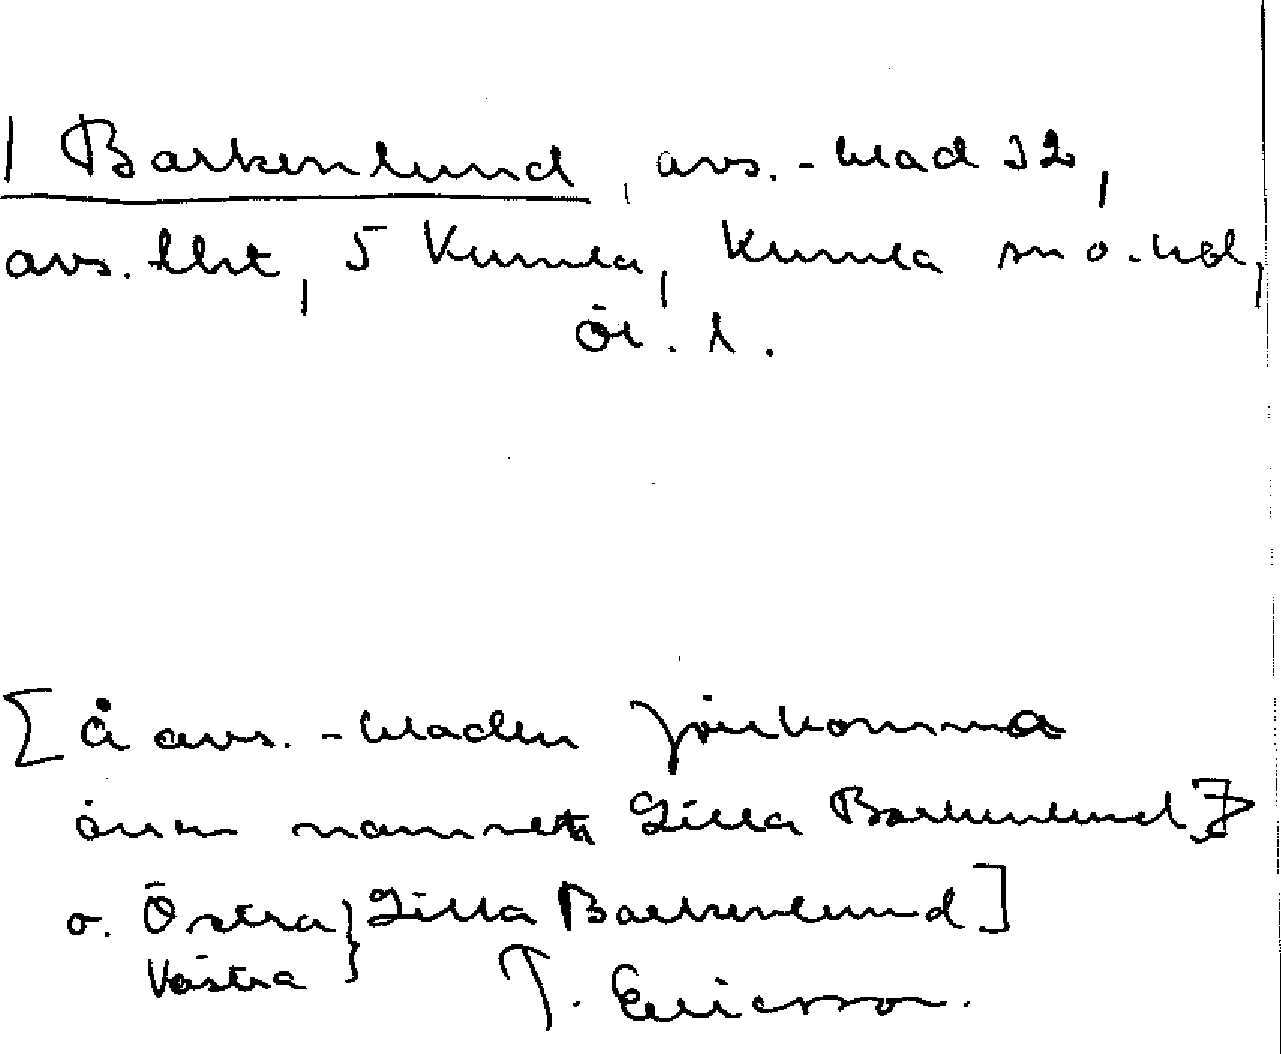 | Barkenlund, avs.-blad 32,
avs. lht, 5 Kumla, Kumla sn o. hd,
Ör. l.
[Å avs.-bladen förekomma
även namnen Lilla Barkenlund
o. Östra } Lilla Barkenlund]
Västra
T. Ericsson.